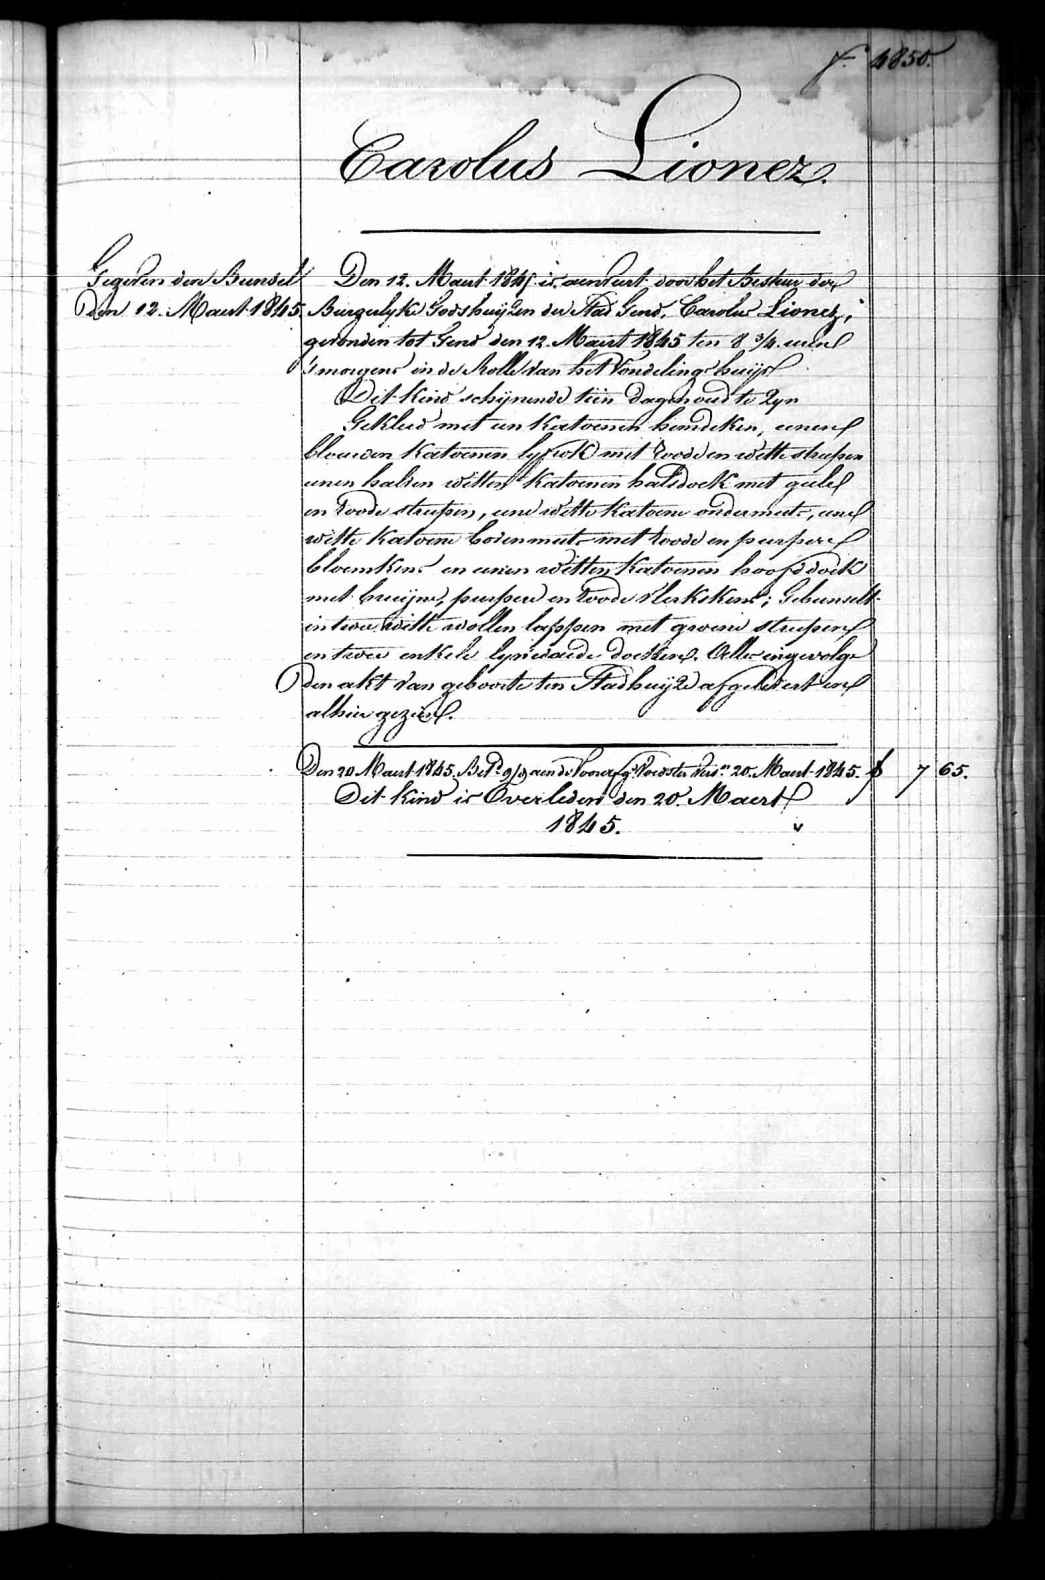 f. 4850.
Carolus Lionez.
Gegeven den Bunsel
den 12. Maert 1845.
Den 12. Maert 1845 is aenveert door het Bestuer der
Burgerlyke Godshuijzen der Stad Gend, Carolus Lionez,
gevonden tot Gend den 12. Maert 1845 ten 8 3/4 uren
's morgens in de Rolle van het Vondelings huijs
Dit kind schijnende tien dagen oud te zyn
Gekleed met een katoenen hemdeken, eenen
blauwen katoenen lyfrok met roode en witte streepen
eenen halven witten katoenen halsdoek met geele
en roode streepen, eene witte katoene ondermuts, eene
witte katoene bovenmuts met roode en purpere
bloemkens en eenen witten katoenen hoofddoek
met bruijne, purpere en roode vlekskens; Gebunselt
in twee witte wollen lappen met groene streepen
en twee enkele lynwaede doeken. Alles ingevolge
den akt van geboorte ten Stadhuijze afgelevert en
alhier gezien.
Den 20 Maert 1845. Bet.d 9/d aen de Voedster Vers.n 20. Maert 1845. f 7 65.
Dit kind is Overleden den 20. Maert
1845.